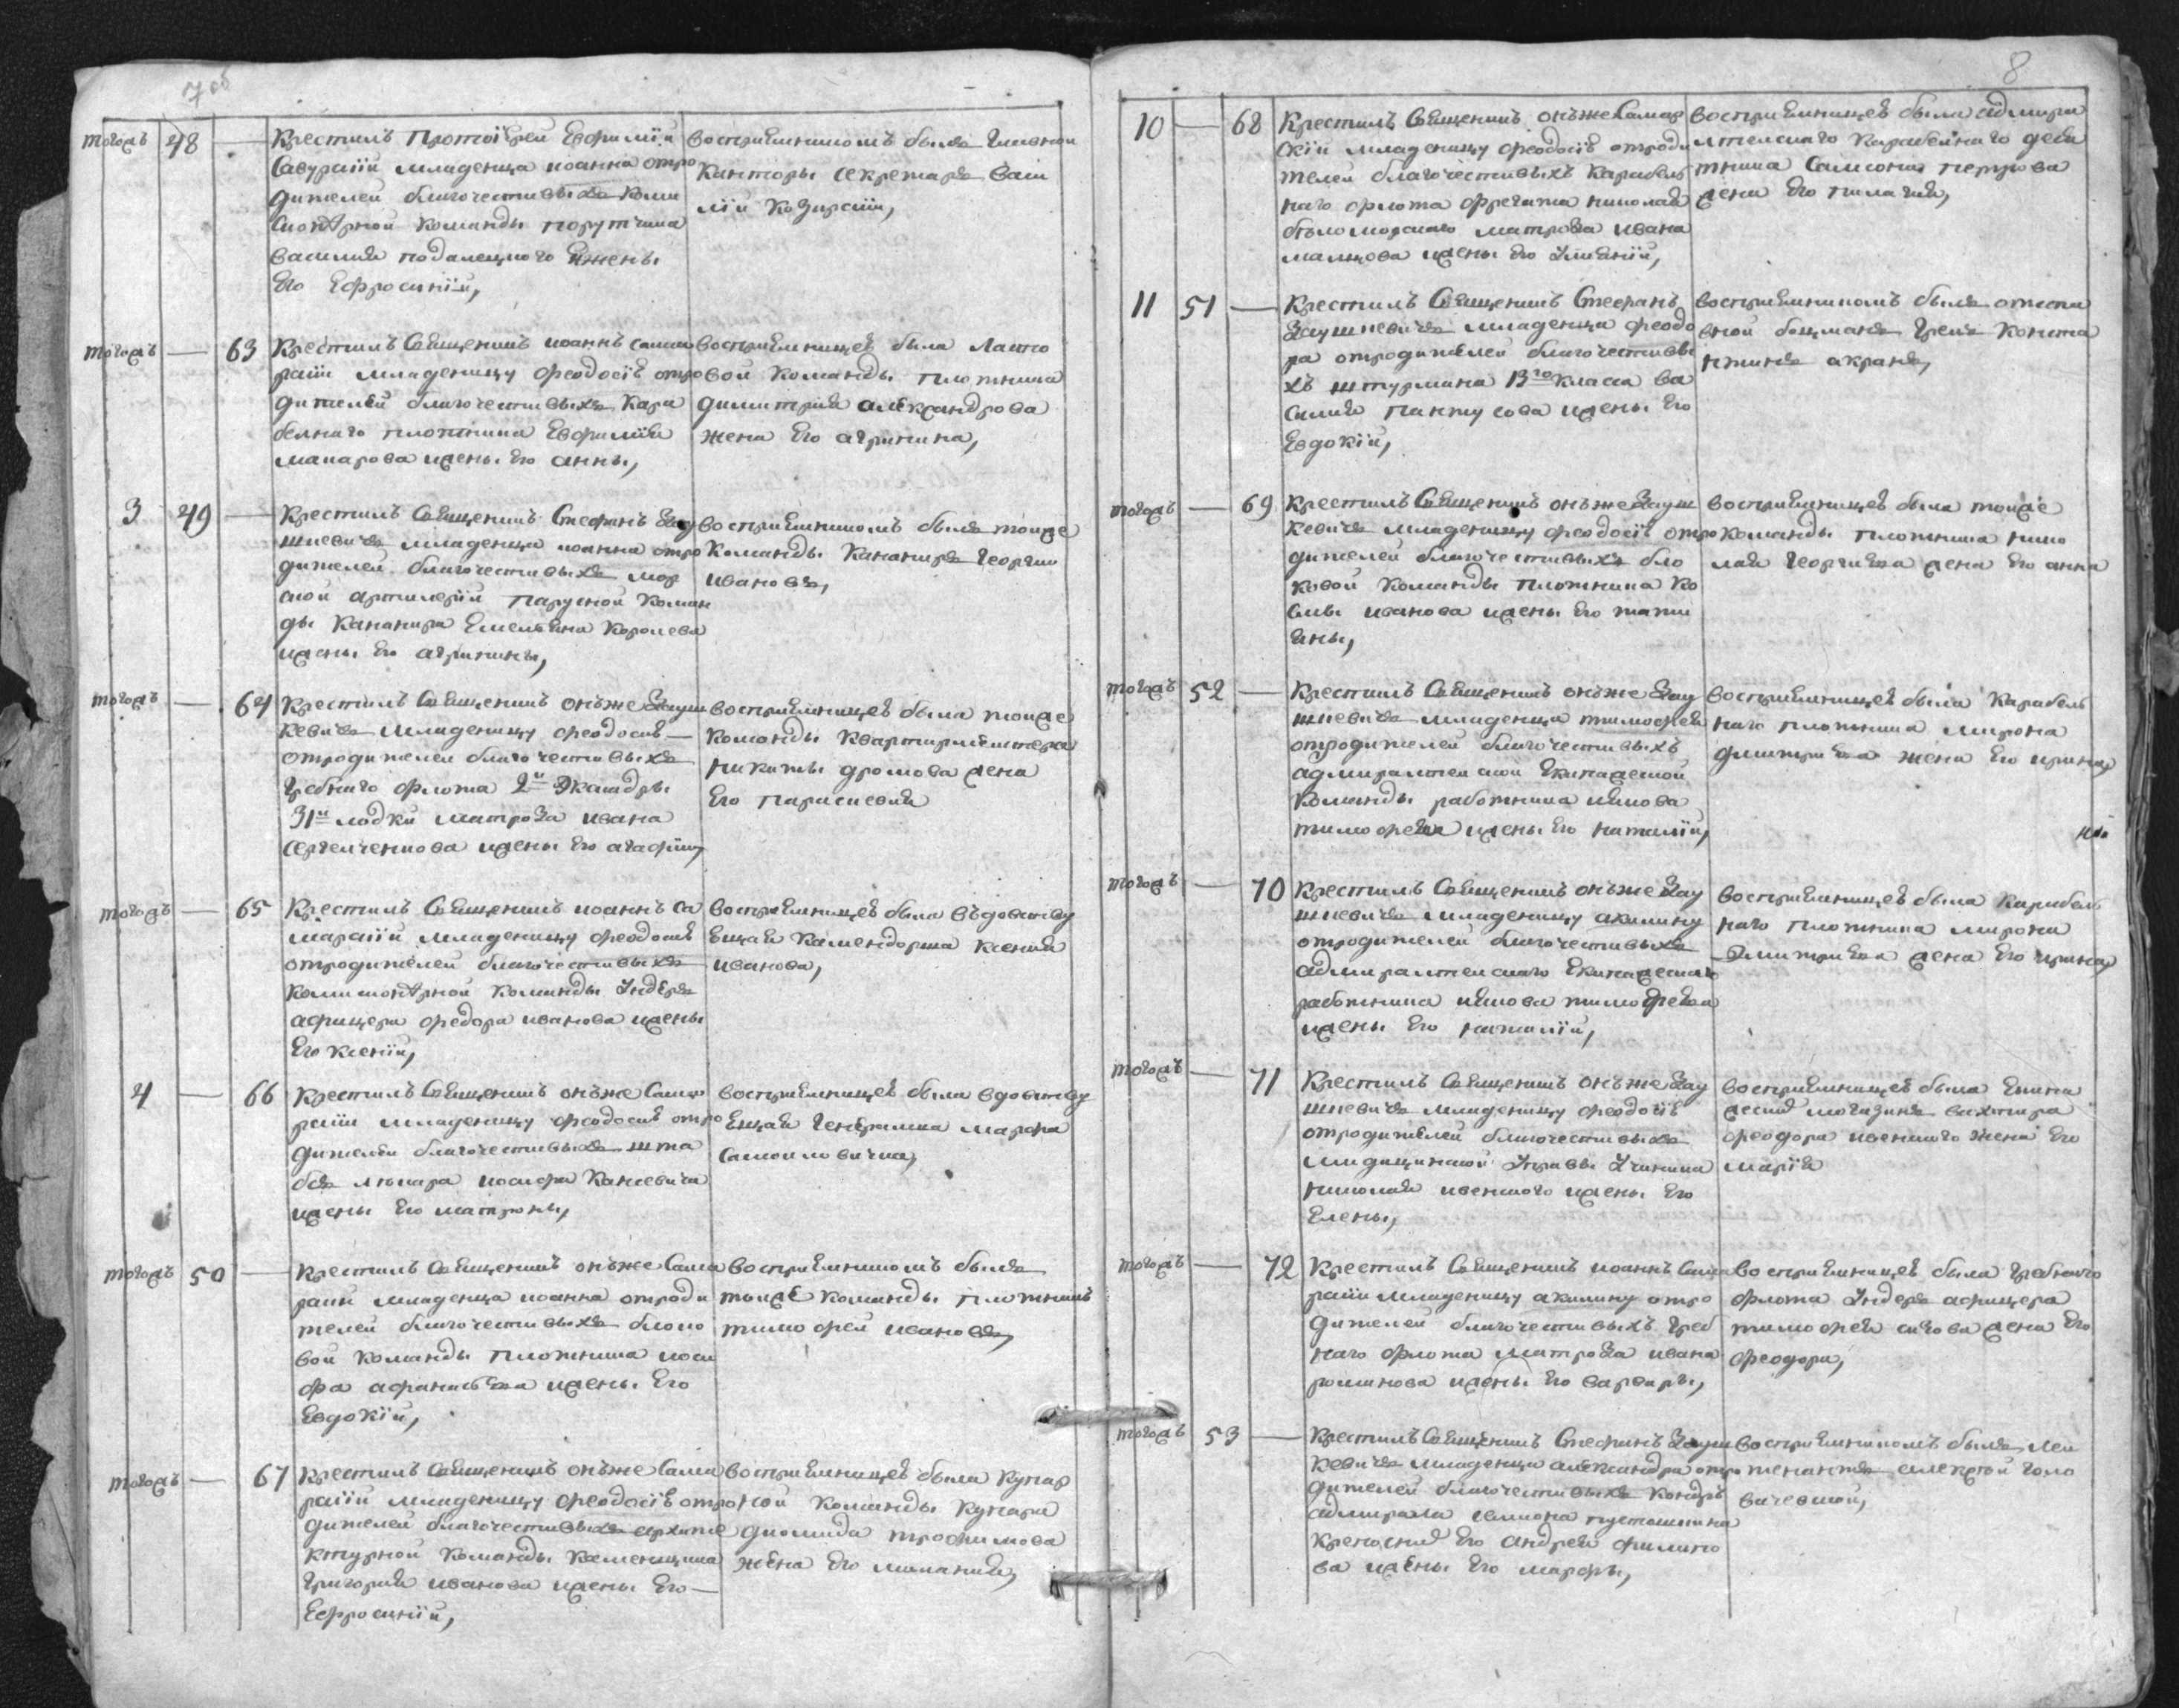 7об
тогожъ 48 — Крестилъ Протоіерей Евфимій
Савурскій младенца иоанна отро
дителей благочестивыхъ коми
сіонерной команды порутчика
василия подалецкого ижены
Его Ефросиніи,
воспріемникомъ былъ
Канторы секретарь васи
лій Козирскій,
тогожъ — 63 Крестилъ Священникъ иоаннъ сама
рскій младеницу феодосію отро
дителей благочестивыхъ кара
белнаго плотника Евфимия
макарова ижены Его анны,
воспріемницею была ласто
вой команды плотника
димитрия александрова
жена Его агрипина,
3 49 — Крестилъ Священникъ Стефанъ Зау
шкевичъ младенца иоанна отро
дителей благочестивыхъ мор
ской артилеріи парусной коман
ды Канонира Емельяна Королева
ижены Его агрипины,
воспріемникомъ былъ тоиже
команды Канониръ Георгии
ивановъ,
тогожъ — 64 Крестилъ Священникъ онъже Зауш
кевичъ младеницу феодосію —
отродителей благочестивыхъ
гребнаго флота 2й Эскадры
31й лодки матроза ивана
ижены Его агафіи,
воспріемницею была тоиже
команды квартирмейстера
никиты громова жена
Его параскевия
тогожъ — 65 Крестилъ Священникъ иоаннъ са
марскій младеницу феодосію
отродителей благочестивыхъ
комисіонерной команды Ундеръ
афицера федора иванова ижены
Его ксеніи,
воспріемницею была въдовству
ещая камендорша ксения
иванова,
4 — 66 Крестилъ Священникъ онъже Самар
скій младеницу феодосію отро
дителей благочестивыхъ шта
бсъ лѣкаря иосифа Каневича
ижены Его матроны,
воспріемницею была вдовству
ещая Генералша марфа
самоиловична,
тогожъ 50 — Крестилъ Священникъ онъже Сама
рскій младенца иоанна отроди
телей благочестивыхъ блоко
вой команды плотника иоси
фа афанасьева ижены Его
Евдокіи,
воспріемникомъ былъ
тоиже команды плотникъ
тимофей ивановъ,
тогожъ — 67 Крестилъ Священникъ онъже Сама
рскій младеницу феодосію отро
дителей благочестивыхъ архите
ктурной команды каменщика
григория иванова ижены Его —
Ефросиніи,
воспріемницею была купар
ной команды купара
диомида трофимова
жена Его мелания,
8
10 — 68 Крестилъ Священникъ онъже Самар
скій младеницу феодосію отроди
телей благочестивыхъ карабель
наго флота фрегата николая
бѣломорскаго матроза ивана
малцова ижены Его Улианіи,
воспріемницею была адмира
лтескаго карабелнаго деся
тника Самсона петрова
жена Его пилагия,
11 51 — Крестилъ Священникъ Стефанъ
Заушкевичъ младенца феодо
ра отродителей благочестивы
хъ штурмана 13го класа ва
силия пантусова ижены Его
Евдокіи,
воспріемникомъ былъ отста
вной боцманъ грекъ конста
нтинъ акранъ,
тогожъ — 69 Крестилъ Священникъ онъже Зауш
кевичъ младеницу феодосію отро
дителей благочестивыхъ бло
ковой команды плотника Ко
смы иванова ижены Его тати
яны,
воспріемницею была тоиже
команды плотника нико
лая Георгиева жена Его анна
тогожъ 52 — Крестилъ Священникъ онъже Зау
шкевичъ младенца тимофея
отродителей благочестивыхъ
адмиралтейской Екипажеской
команды работника иякова
тимофеева ижены Его наталіи,
воспріемницею была карабель
наго плотника мирона
дмитриева жена Его ирина,
тогожъ — 70 Крестилъ Священникъ онъже Зау
шкевичъ младеницу акилину
отродителей благочестивыхъ
адмиралтейскаго Екипажескаго
работника иякова тимофеева
ижены Его наталіи,
воспріемницею была карабель
наго плотника мирона
Дмитриева жена Его ирина,
тогожъ — 71 Крестилъ Священникъ онъже Зау
шкевичъ младеницу феодосію
отродителей благочестивыхъ
мидицинской Управы Ученика
николая ивенского ижены Его
Елены,
воспріемницею была Екипа
магазина вахтера
феодора ивенского жена Его
Марія
тогожъ — 72 Крестилъ Священникъ иоаннъ Сама
рскій младеницу акилину отро
дителей благочестивыхъ греб
наго флота матроза ивана
романова ижены Его варвары,
воспріемницею была гребнаго
флота Ундеръ афицера
тимофея сизова жена Его
феодора,
тогожъ 53 — Крестилъ Священникъ Стефанъ Зауш
кевичъ младенца александра отро
дителей благочестивыхъ контръ
адмирала семиона пустошкина
крепосные Его андрея филипо
ва ижены Его марфы,
воспріемникомъ былъ леи
тенантъ алексѣй голо
вачевской,